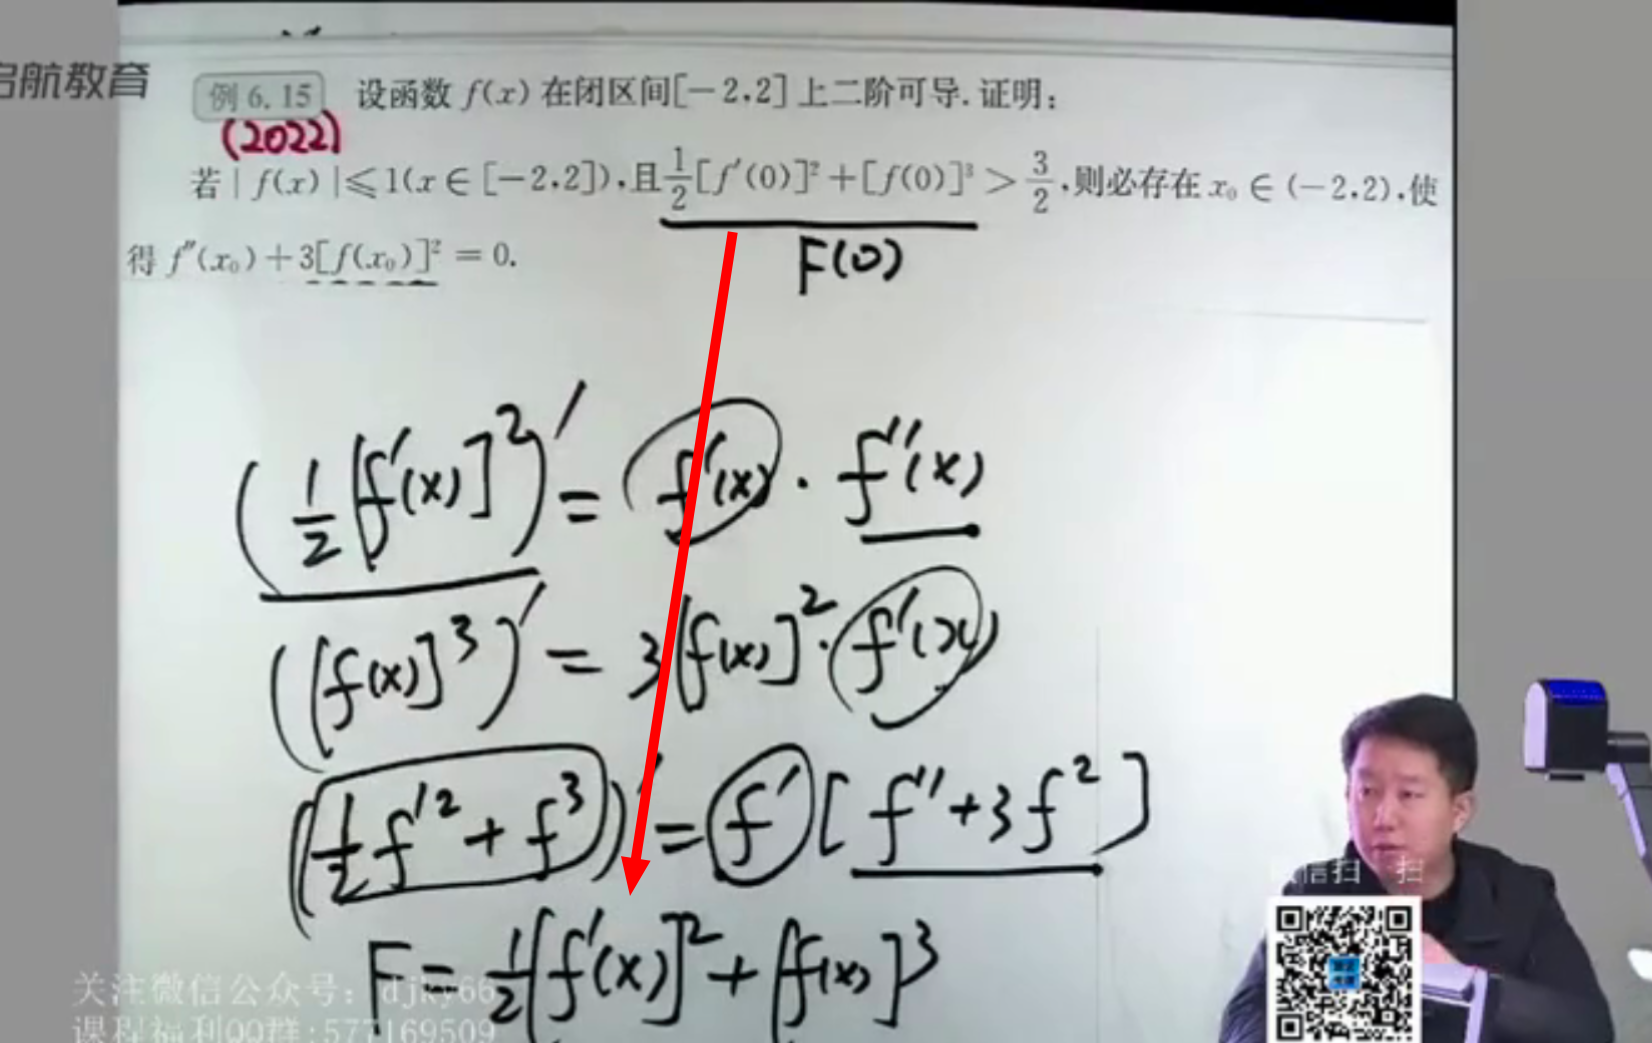 启航教育
例 6.15 设函数 f(x) 在闭区间[-2,2] 上二阶可导. 证明:
(2022)
若 | f(x) |≤1(x∈[-2,2]),且 1/2 [f′(0)]² + [f(0)]³ > 3/2 ,则必存在 x₀∈(-2,2),使
得 f″(x₀)+3[f(x₀)]² = 0.
F(0)
(1/2 [f′(x)]²)′ = f′(x) · f″(x)
([f(x)]³)′ = 3[f(x)]² · f′(x)
(1/2 f′² + f³)′ = f′ [ f″ + 3f² ]
F = 1/2 [f′(x)]² + [f(x)]³
信扫 扫
关注微信公众号: djky66
课程福利QQ群:577169509